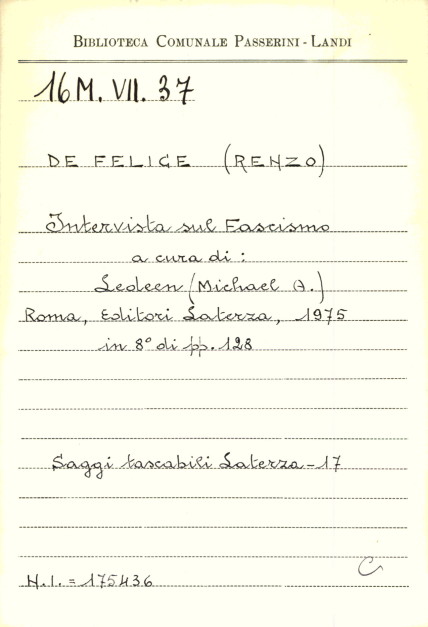 BIBLIOTECA COMUNALE PASSERINI - LANDI
16 M. VII. 37
DE FELICE (RENZO)
Intervista sul Fascismo
a cura di :
Ledeen (Michael A.)
Roma, Editori Laterza, 1975
in 8° di pp. 128
Saggi tascabili Laterza - 17
C
N.I. = 175436